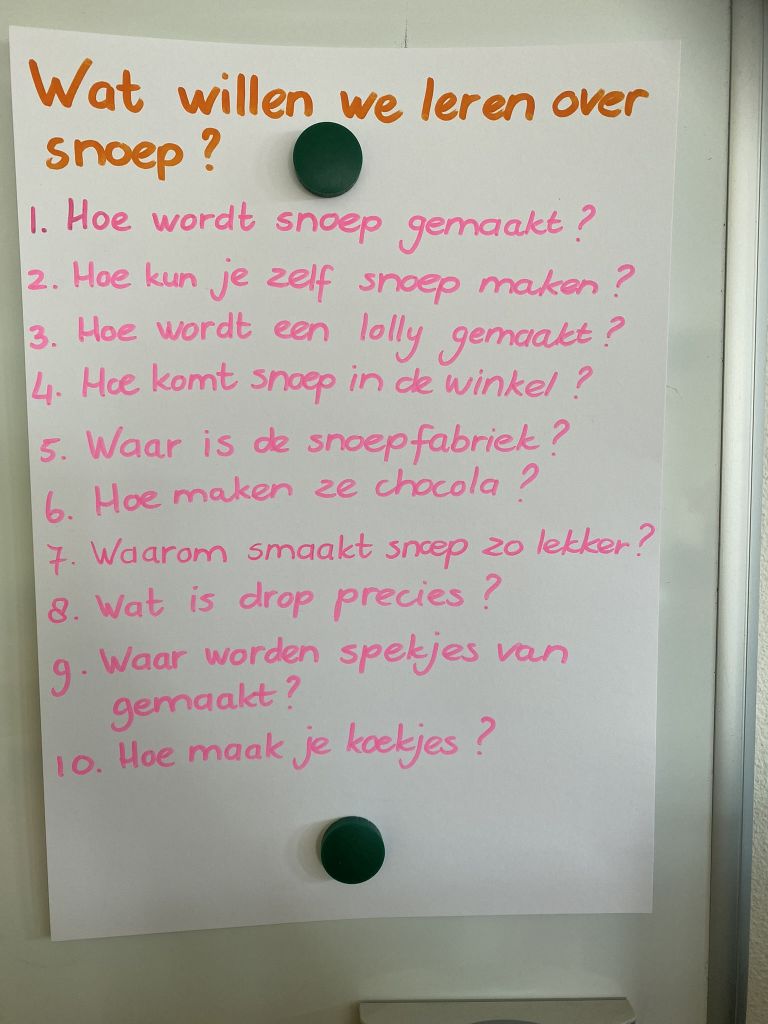 Wat willen we leren over
snoep?
1. Hoe wordt snoep gemaakt?
2. Hoe kun je zelf snoep maken?
3. Hoe wordt een lolly gemaakt?
4. Hoe komt snoep in de winkel?
5. Waar is de snoepfabriek?
6. Hoe maken ze chocola?
7. Waarom smaakt snoep zo lekker?
8. Wat is drop precies?
9. Waar worden spekjes van
gemaakt?
10. Hoe maak je koekjes?